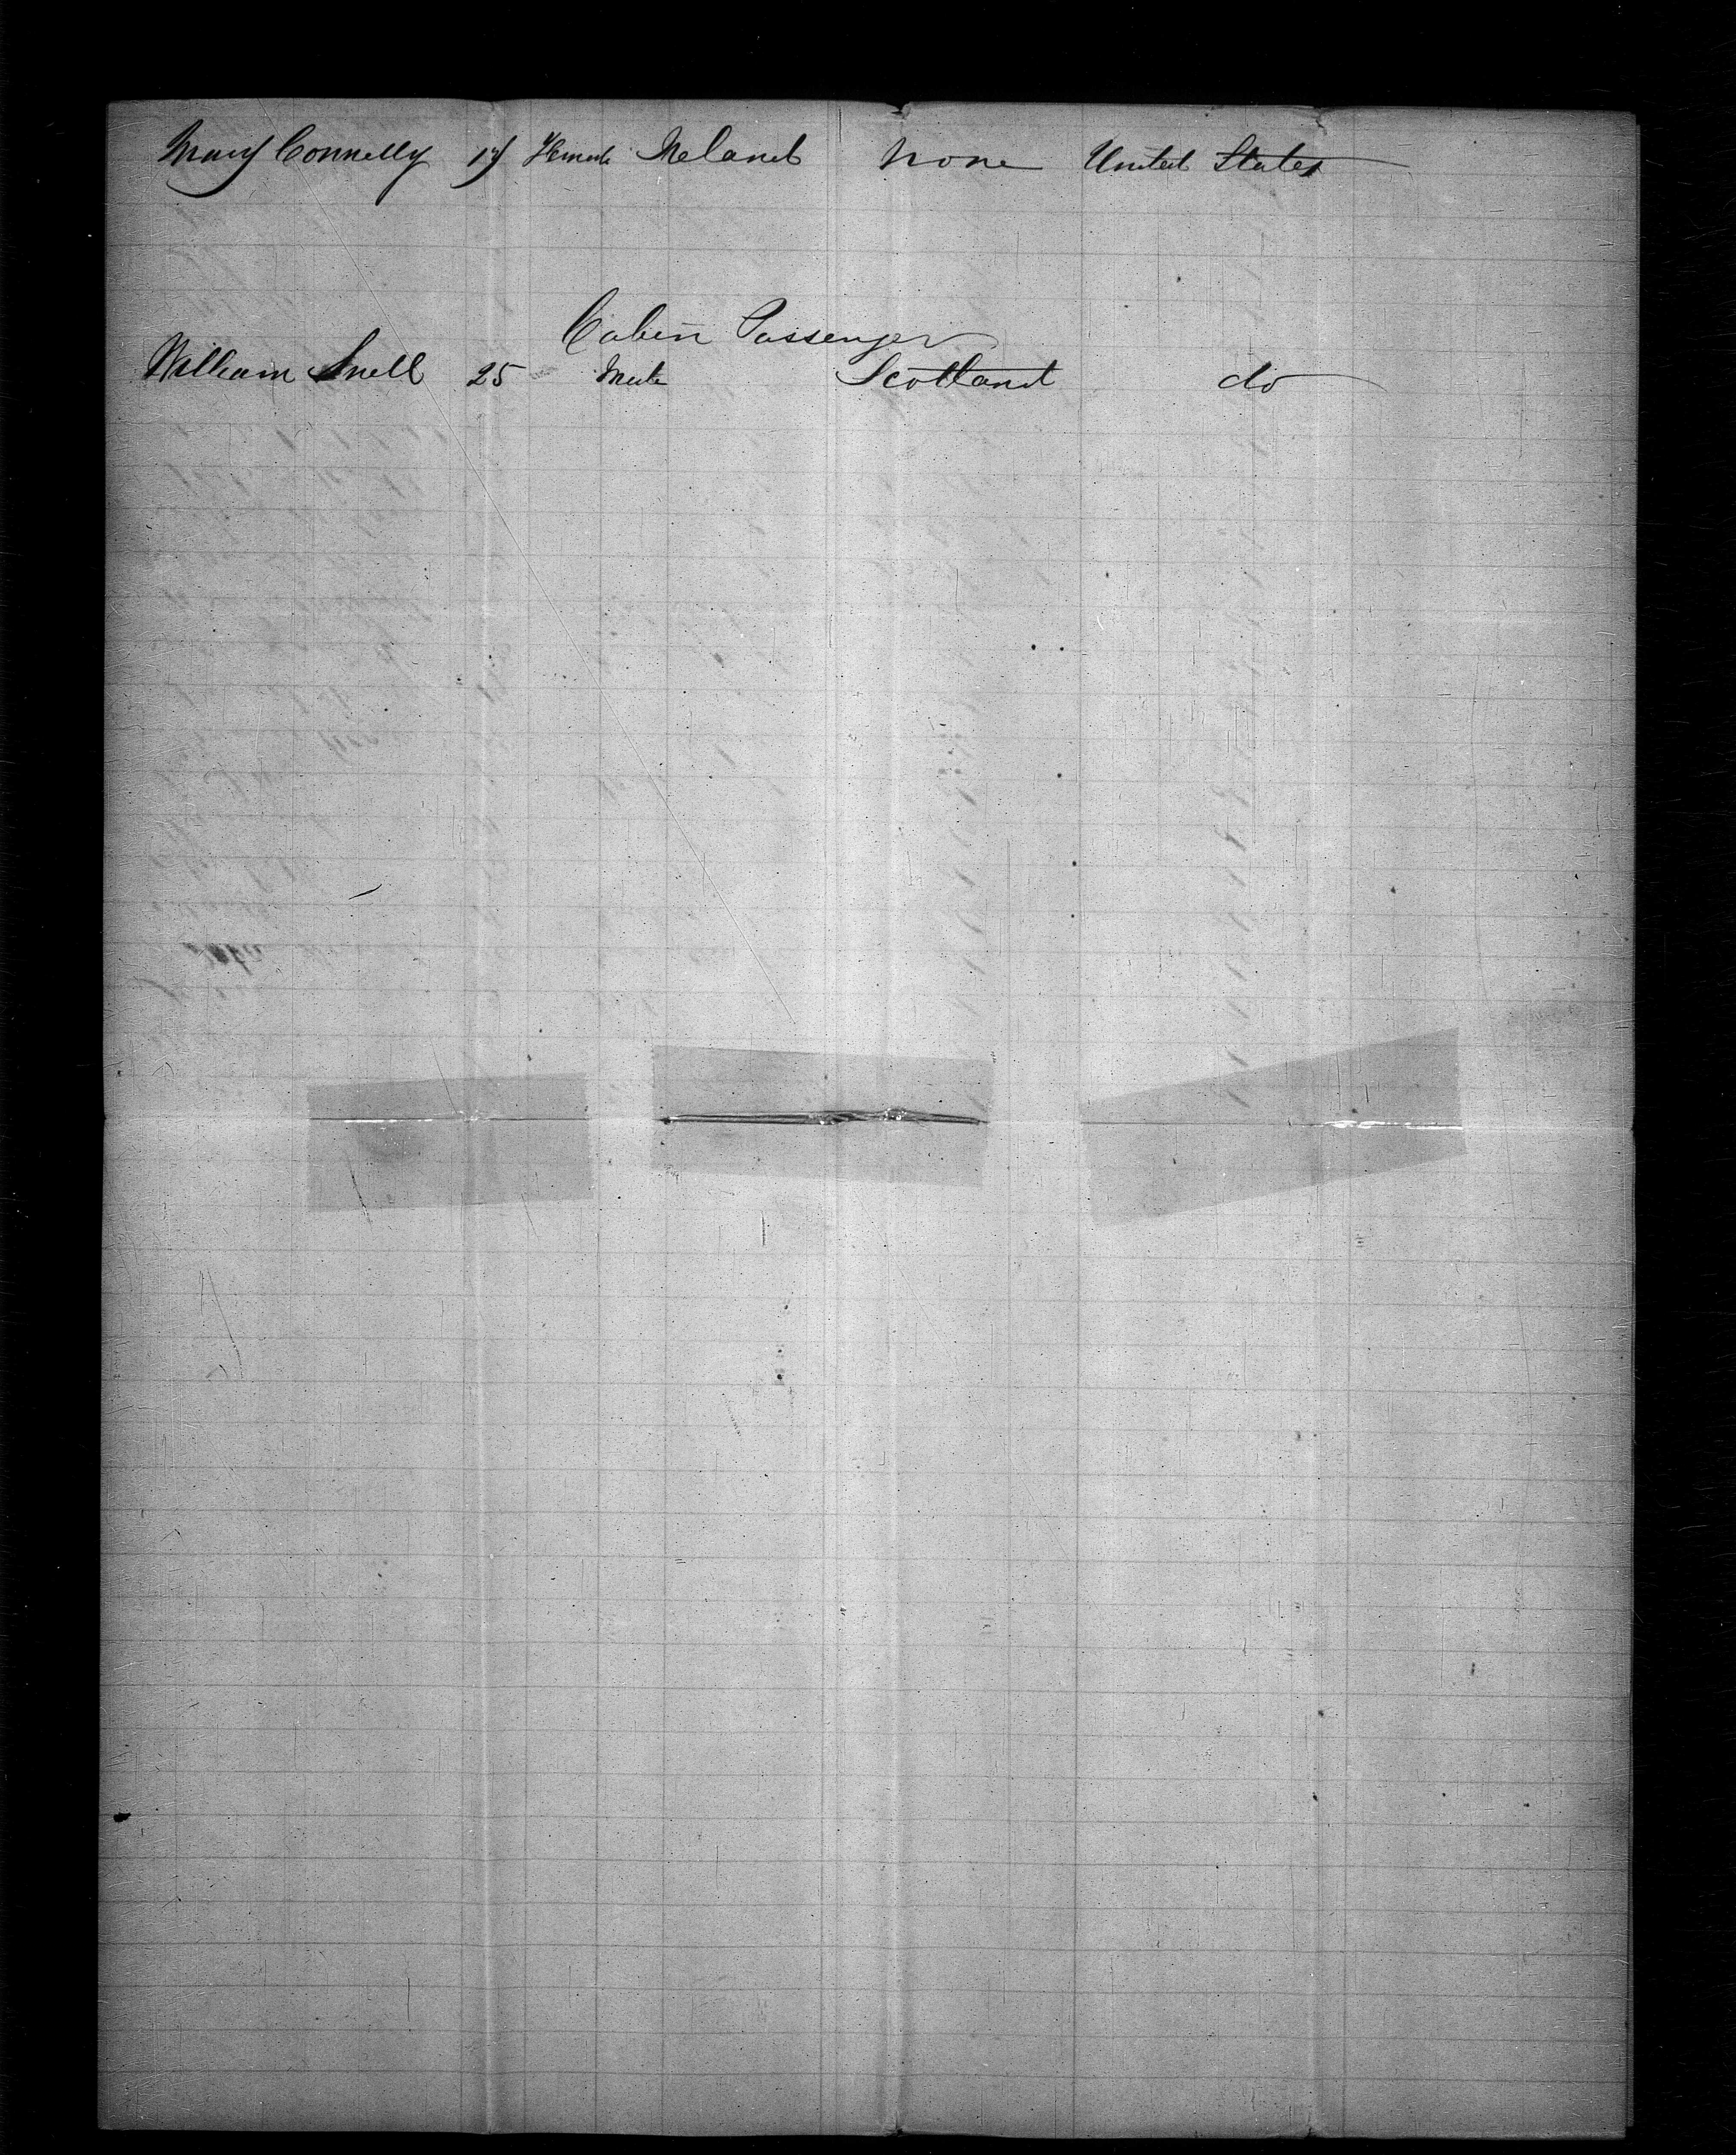 Mary Connelly 17 Female Ireland None United States
Cabin Passenger
William Snell 25 Male Scotland do